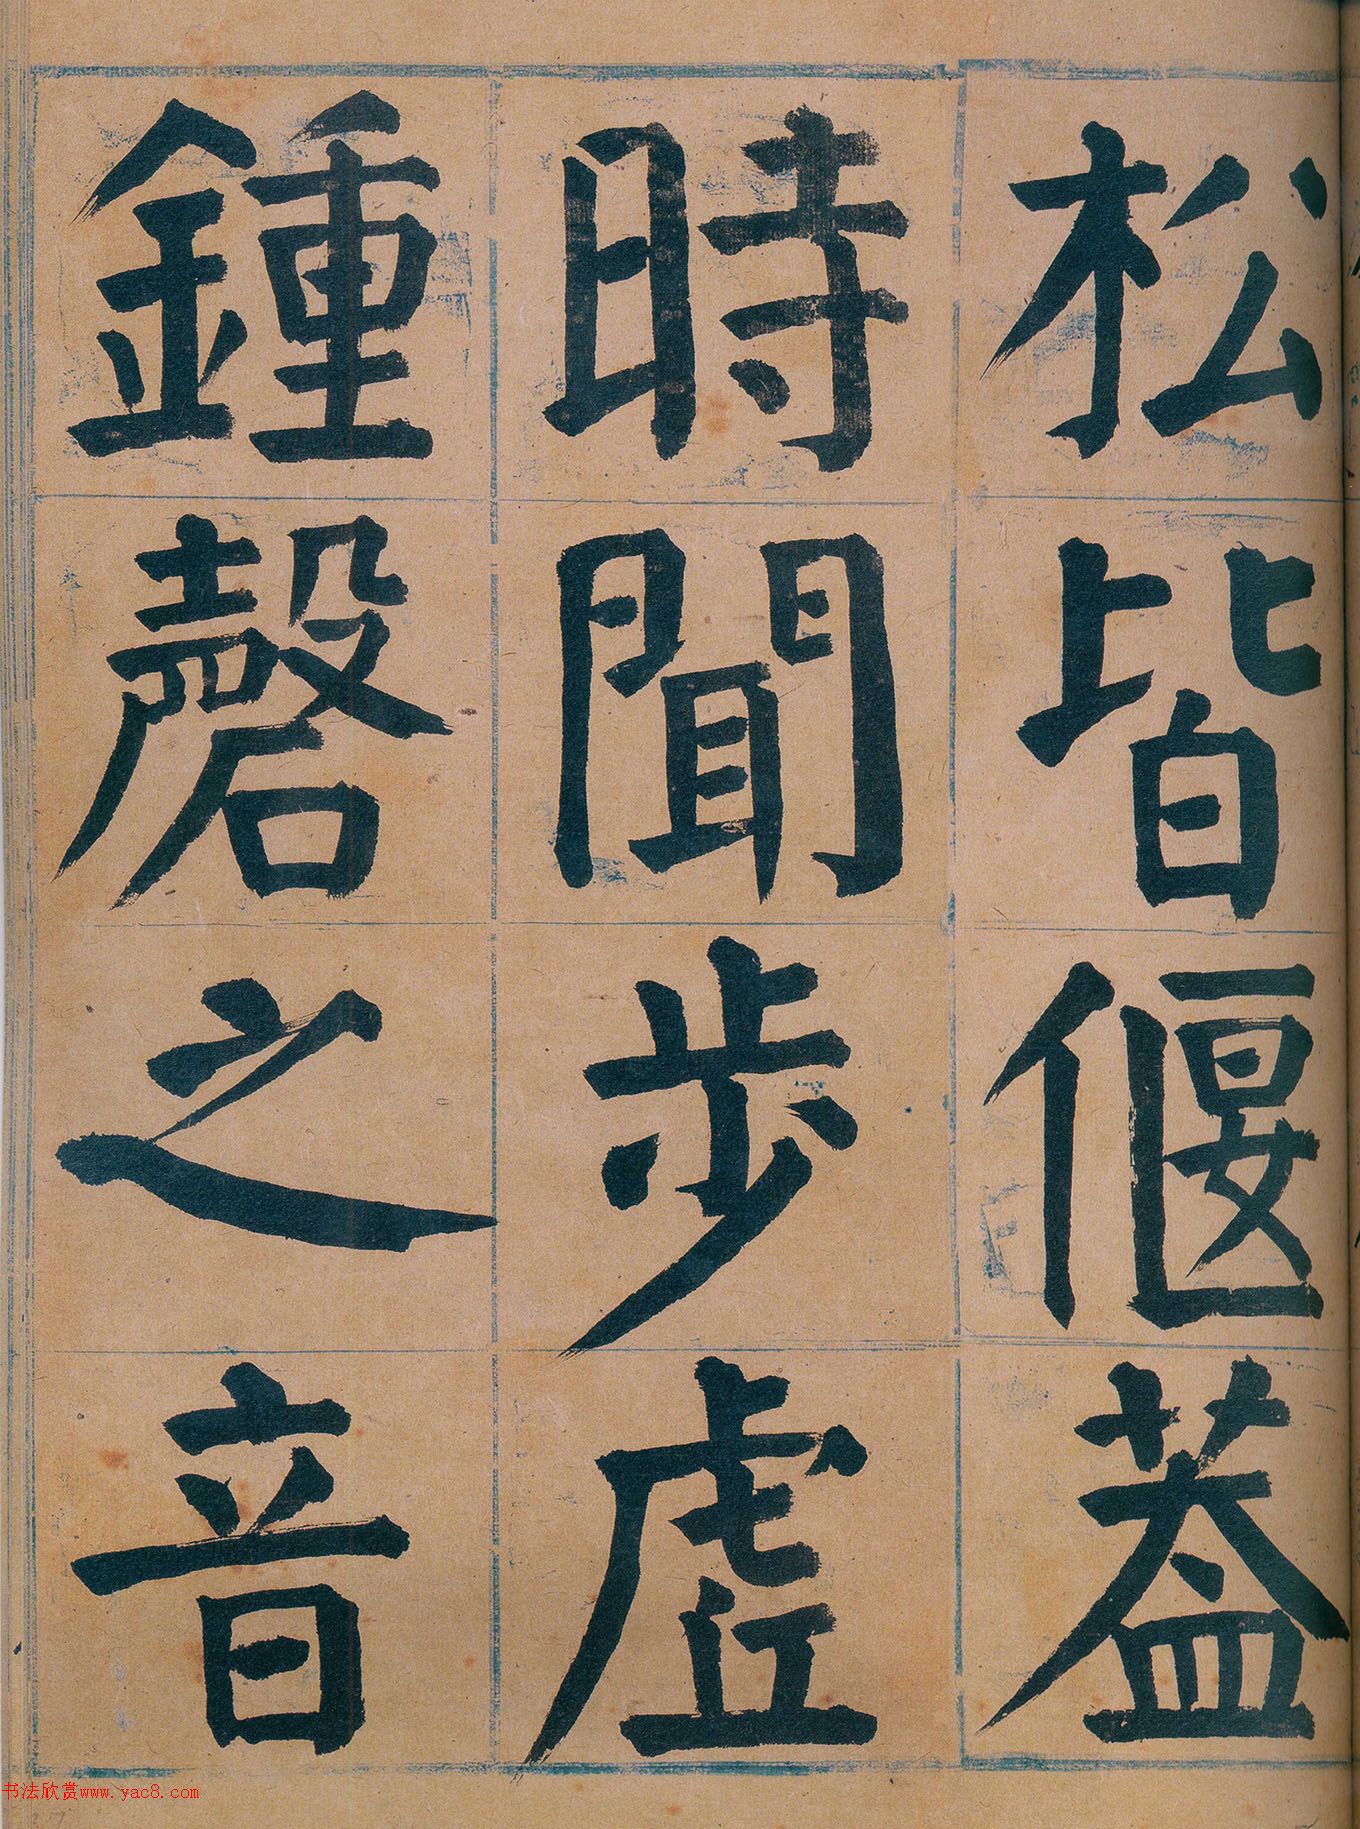 松皆偃蓋
時聞步虛
鍾磬之音
书法欣赏www.yac8.com